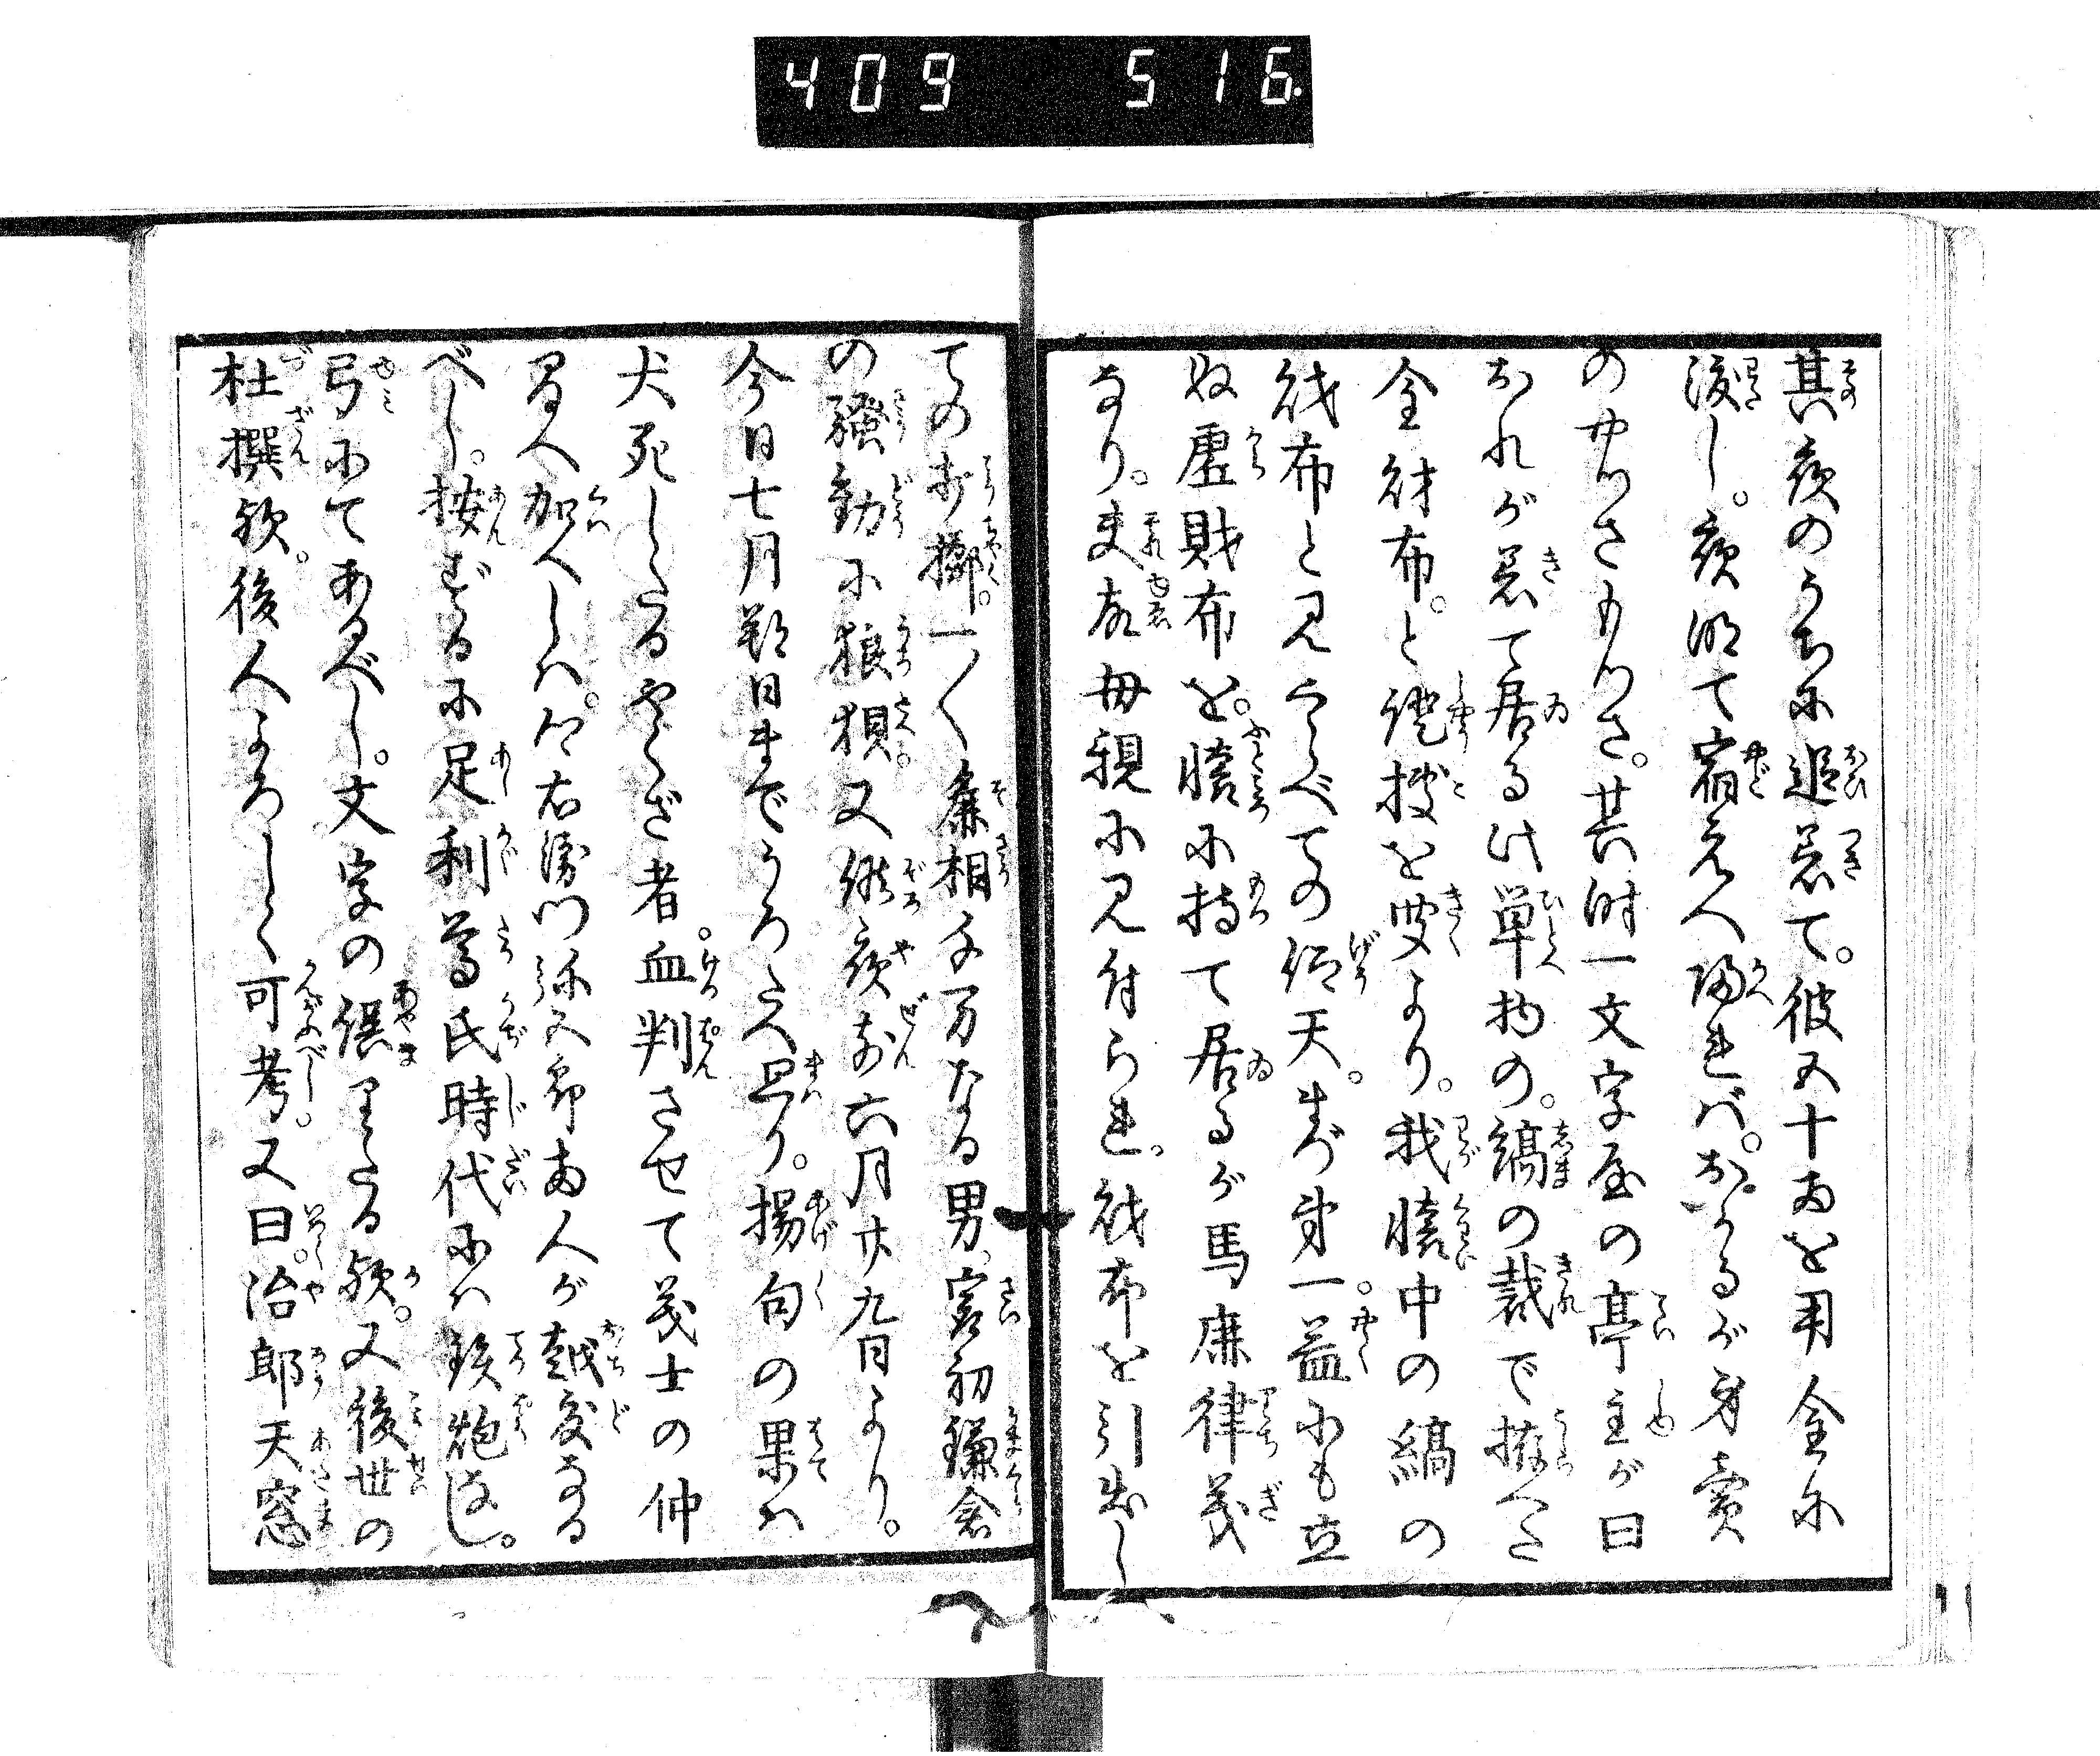 409 516.
其夜のうちに追着て。彼五十両を用金に
渡し。夜明て宿元へ帰れバ。おかるが身売
のやつさもつさ。其時一文字屋の亭主が曰
おれが着て居る此単物の。縞の裁で拵へた
金財布。と証拠を聞より。我懐中の縞の
財布と見くらべての仰天。まづ第一。益にも立
ぬ虚財布を。懐に持て居るが馬鹿律義
なり。夫故母親に見付られ。財布を引出し
ての打擲。一〳〵麁相千万なる男。宮初鎌倉
の騒動に狼狽。又候夜前六月廿九日より。
今日七月朔日までうろたへ廻り。揚句の果ハ
犬死したるやくざ者。血判させて義士の仲
間へ加へしハ。郷右衛門弥五郎両人が越度なる
べし。按ずるに足利尊氏時代にハ鉄炮なし。
弓にてあるべし。文字の誤りたる歟。又後世の
杜撰歟。後人よろしく可考。又曰。冶郎天窓